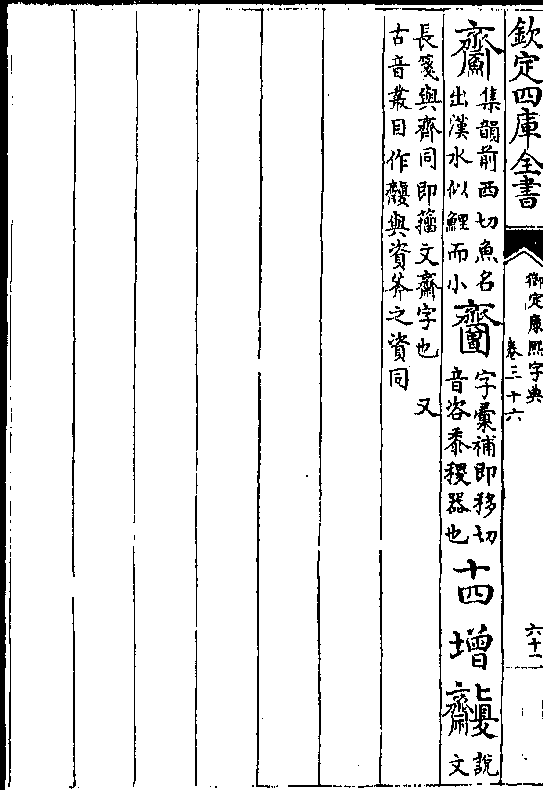 欽定四庫全書
御定康熙字典
卷三十六
六十一
集韻前西切魚名
出漢水似鯉而小
字彙補即移切
音咨黍稷器也
十四
增
說
文
長箋與齊同即籀文齋字也　又
古音叢目作與資斧之資同